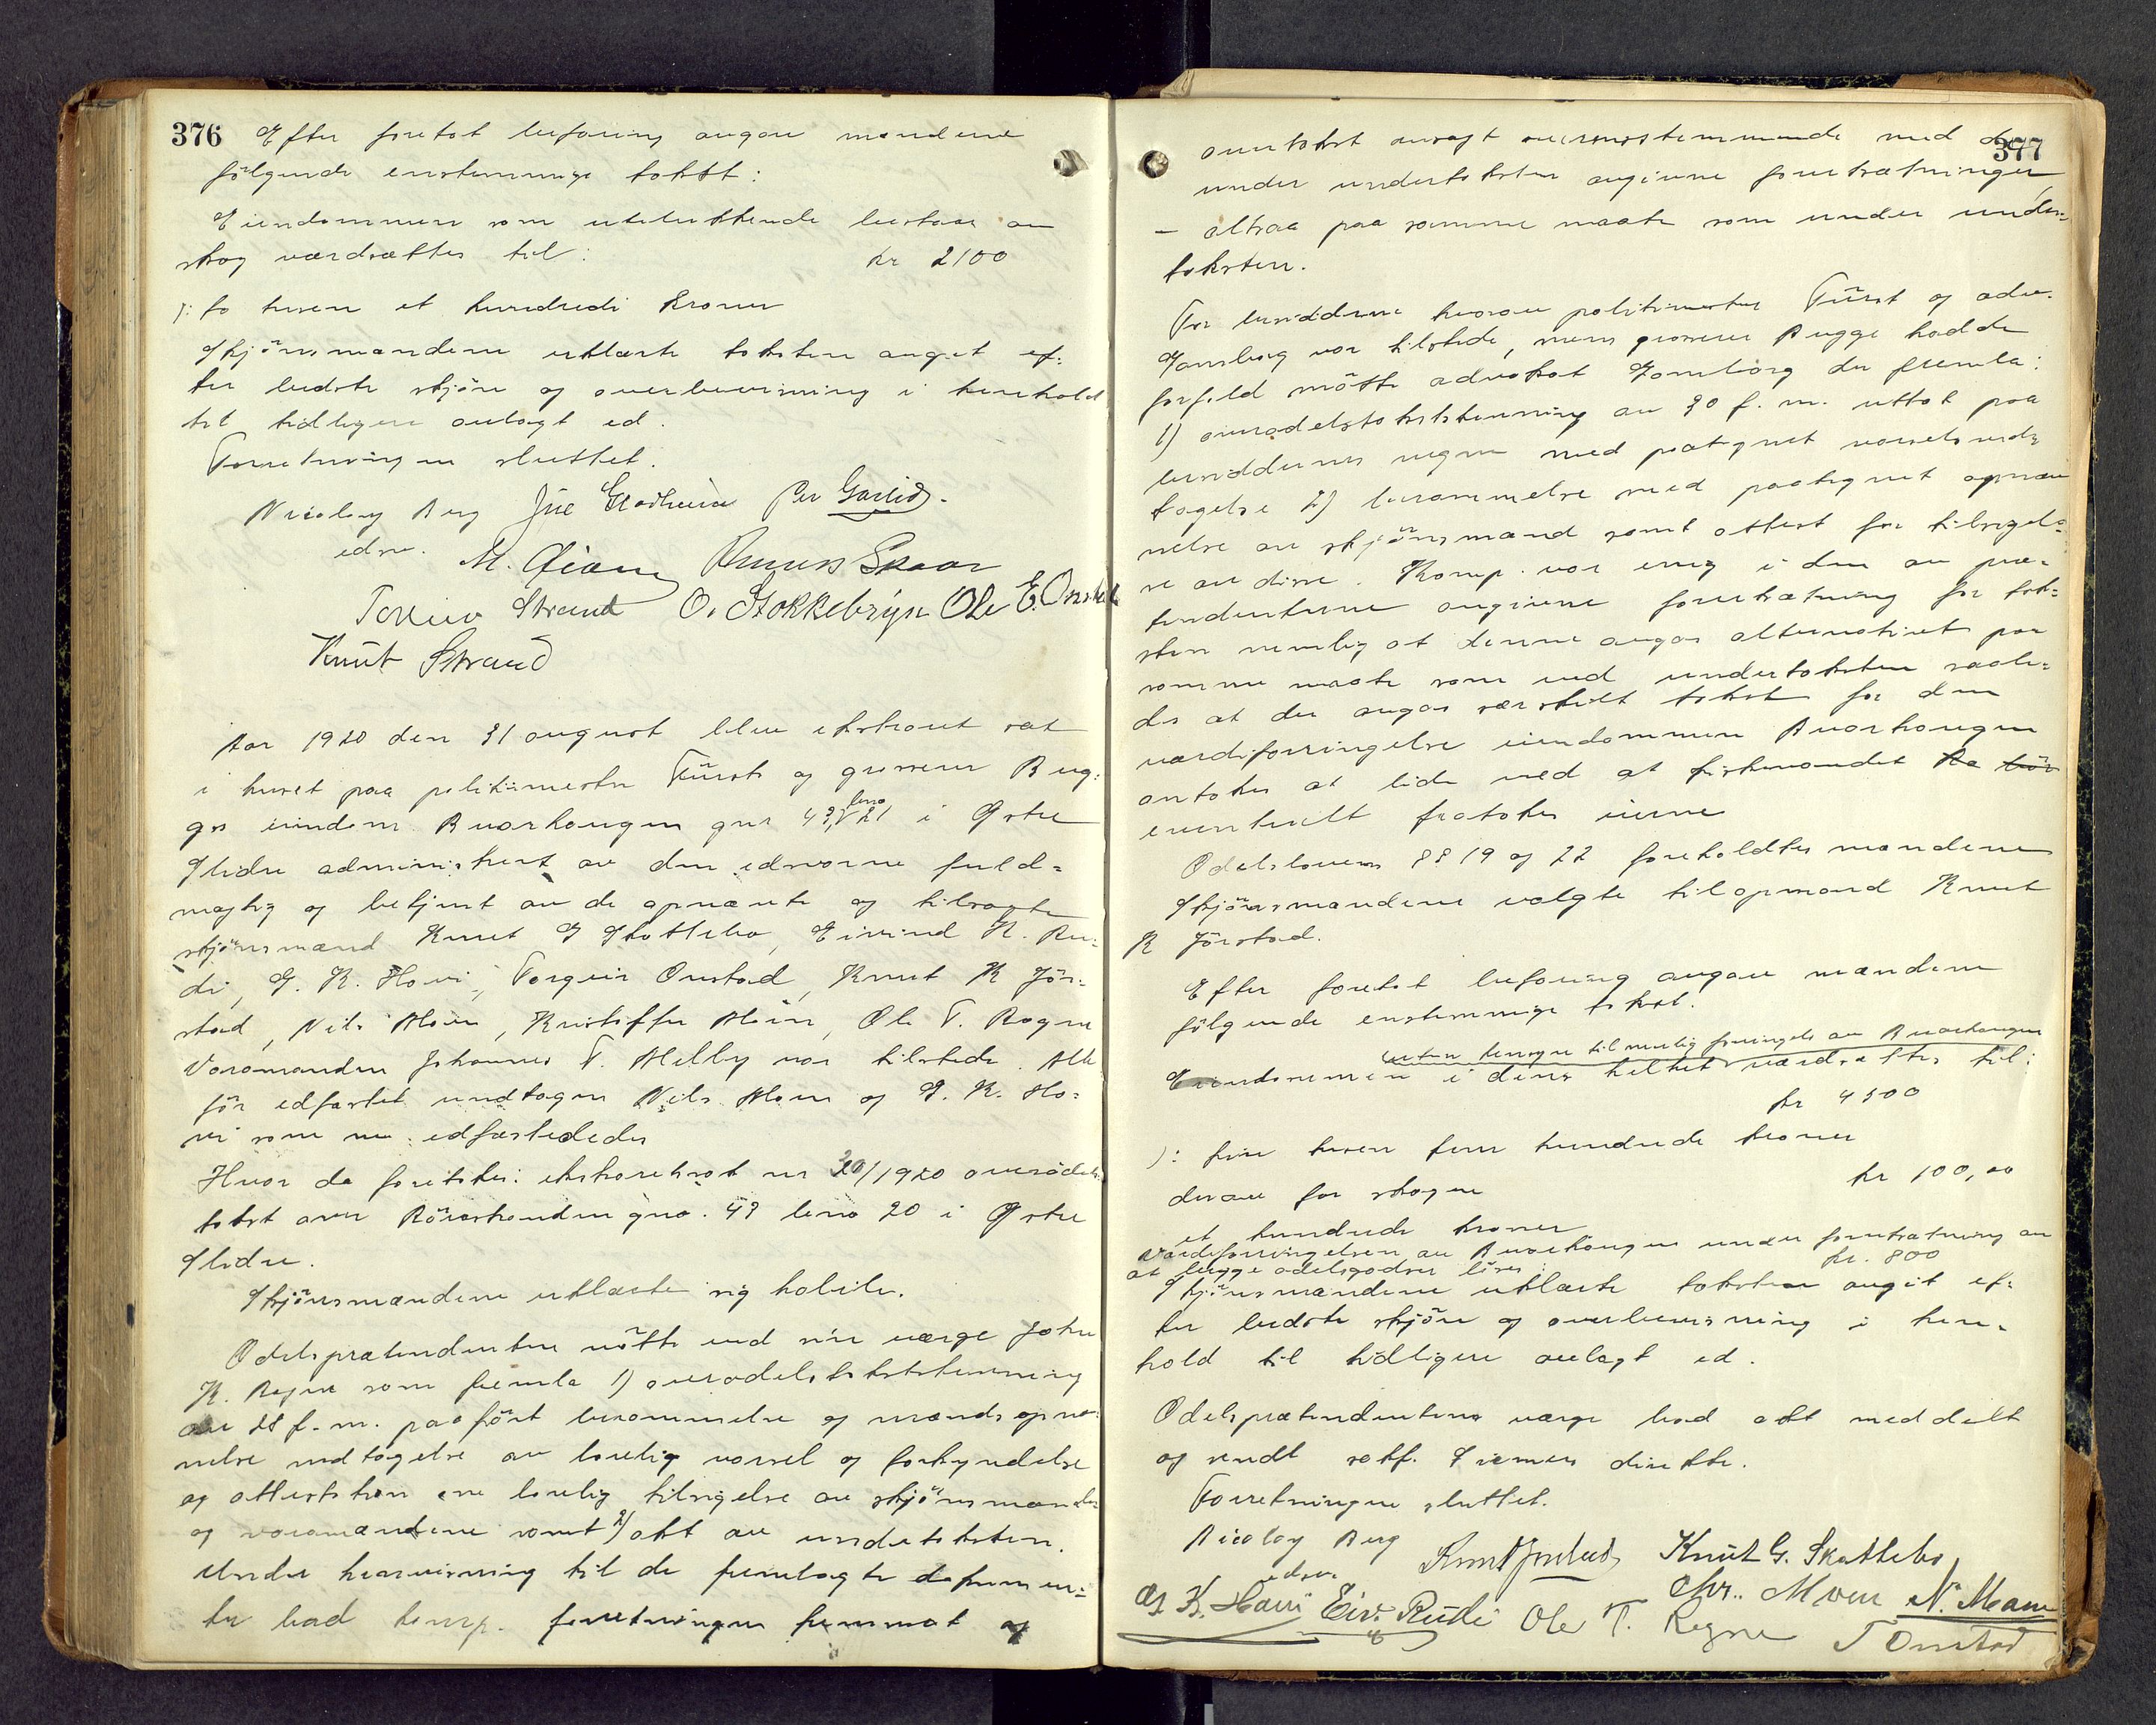 376
Efter foretat befaring avgav mændene
følgende enstemmige takst:
Eiendommen som utelukkende bestaar av
skog værdsættes til: kr 2100
): to tusen et hundrede kroner
Skjönsmændene erklærte taksten avgit ef-
ter bedste skjön og overbevisning i henhold
til tidligere avlagt ed.
Forretningen sluttet.
Nicolay Berg
edsv.
Per Garlid.
M. Qiam Skaar
Strand O. Stokkebryn Ole E.
Knut Strand
Aar 1920 den 31 august blev ekstraret sat
i huset paa politimester Fürst og grosserer Bug-
ges eiendom Buarhaugen gnr 43, bno 21 i Östre
Slidre administrert av den edsvorne fuld-
mægtig og betjent av de opnævnte og tilsagte
skjönsmænd Knut G Skattebo, Eivind K. Ru-
di, G. K. Hovi, Torgeir Onstad, Knut K Jör-
stad, Nils Moen, Kristoffer Moen, Ole T. Rogne
Varamanden Johannes T. Melby var tilstede. Alle
för edfæstet undtagen Nils Moen og G. K. Ho-
vi som nu edfæstededes
Hvor da foretokes: ekstraretssak nr 20/1920 overodels-
takst over gno. 43 bno 20 i Östre
Slidre.
Skjönsmændene erklærte sig habile.
Odelsprætendenten mötte ved sin værge John
K. Rogne som fremla 1) overodelstakststevning
av 28 f.m. paafört berammelse og mands opnæv-
nelse mottagelse av lovlig varsel og forkyndelse
og attestation om lovlig tilsigelse av skjönsmænden
og varamændene samt 2) akt av undertaksten.
Under henvisning til de fremlagte dokumen-
ter bad komp. forretningen fremmet og
377
overtakst avsagt overensstemmende med de
under undertaksten avgivne forutsætninger
– altsaa paa samme maate som under under-
taksten.
For besidderne hvorav politimester Fürst og adv.
Gansborg var tilstede, mens grosserer Bugge hadde
forfald mötte advokat Gansborg der fremla:
1) overodelstakststevning av 30 f.m. uttat paa
besiddernes vegne med paategnet varselsved-
tagelse 2) berammelse med paategnet opnæv-
nelse av skjönsmænd samt attest for tilsigel-
se av disse. Komp. var enig i den av præ-
tendenterne avgivne forutsætning for tak-
sten nemlig at denne avgis alternativt paa
samme maate som ved undertaksten saale-
des at der avgis særskilt takst for den
værdiforringelse eiendommen Buarhaugen
antokes at lide ved at fiskevandet
eventuelt fratokes eierne
Odelslovens §§ 19 og 22 foreholdtes mændene
Skjönsmændene valgte til opmand Knut
K Jörstad.
Efter foretat befaring avgav mændene
følgende enstemmige takst:
uten hensyn til mulig foringelse av Buarhaugen
Eiendommen i dens helhet værdsættes til:
kr 4500
): fire tusen fem hundrede kroner
derav for skogen kr 100,00
et hundrede kroner
Værdiforringelsen av Buarhaugen under forutsætning av
at begge odelsgodser löses: kr. 800
Skjönsmændene erklærte taksten avgit ef-
ter bedste skjön og overbevisning i hen-
hold til tidligere avlagt ed.
Odelsprætendentens værge bad akt meddelt
og sendt sakf. direkte.
Forretningen sluttet.
Nicolay Berg
edsv.
Knut G. Skattebo
Chr. Moen N. Moen
G. K. Hovi Eiv. Rudi Ole T. Rogne T Onstad